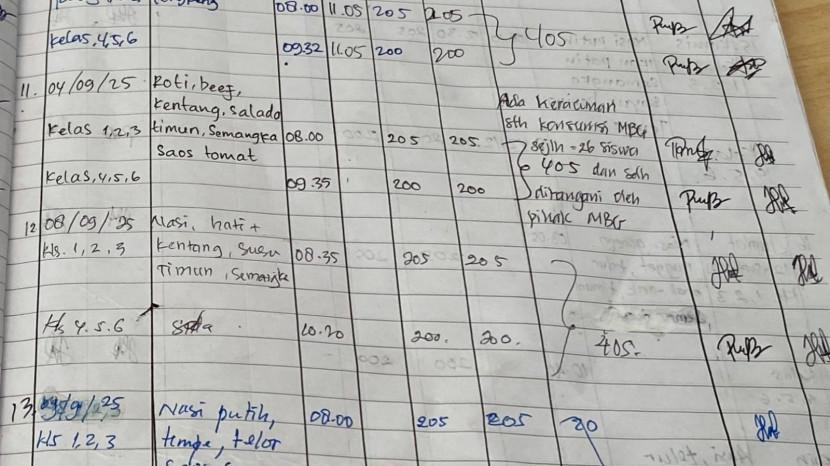 08.00 11.05 205 205
Kelas,4,5,6 405
0932 11.05 200 200
11. 04/09/25 Roti, beef,
Kentang, salado Ada Keracunan
Kelas 1,2,3 timun, Semangka 08.00 205 205. sth konsumsi MBG
Saos tomat Sejlh = 26 siswa
405 dan sdh
Kelas,4,5,6 09.35 200 200 ditangani oleh
pihak MBG
12 08/09/25 Nasi, hati +
Kls. 1, 2, 3 Kentang, susu 08.35 205 205
Timun, Semangka
Kls 4.5.6 10.20 200. 200. 405.
13. /9/25 Nasi putih, 08.00 205 205
Kls 1,2,3 tempe, telor